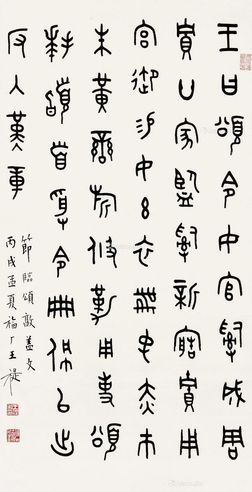 王曰頌令女官𤔲成周
貯廿家監𤔲新造貯用
宮御易女玄衣黹屯赤市
朱黃䜌旂攸勒用事頌
拜𩒨首受令冊佩以出
反入堇章
節臨頌敦蓋文
丙戌孟夏福厂王禔